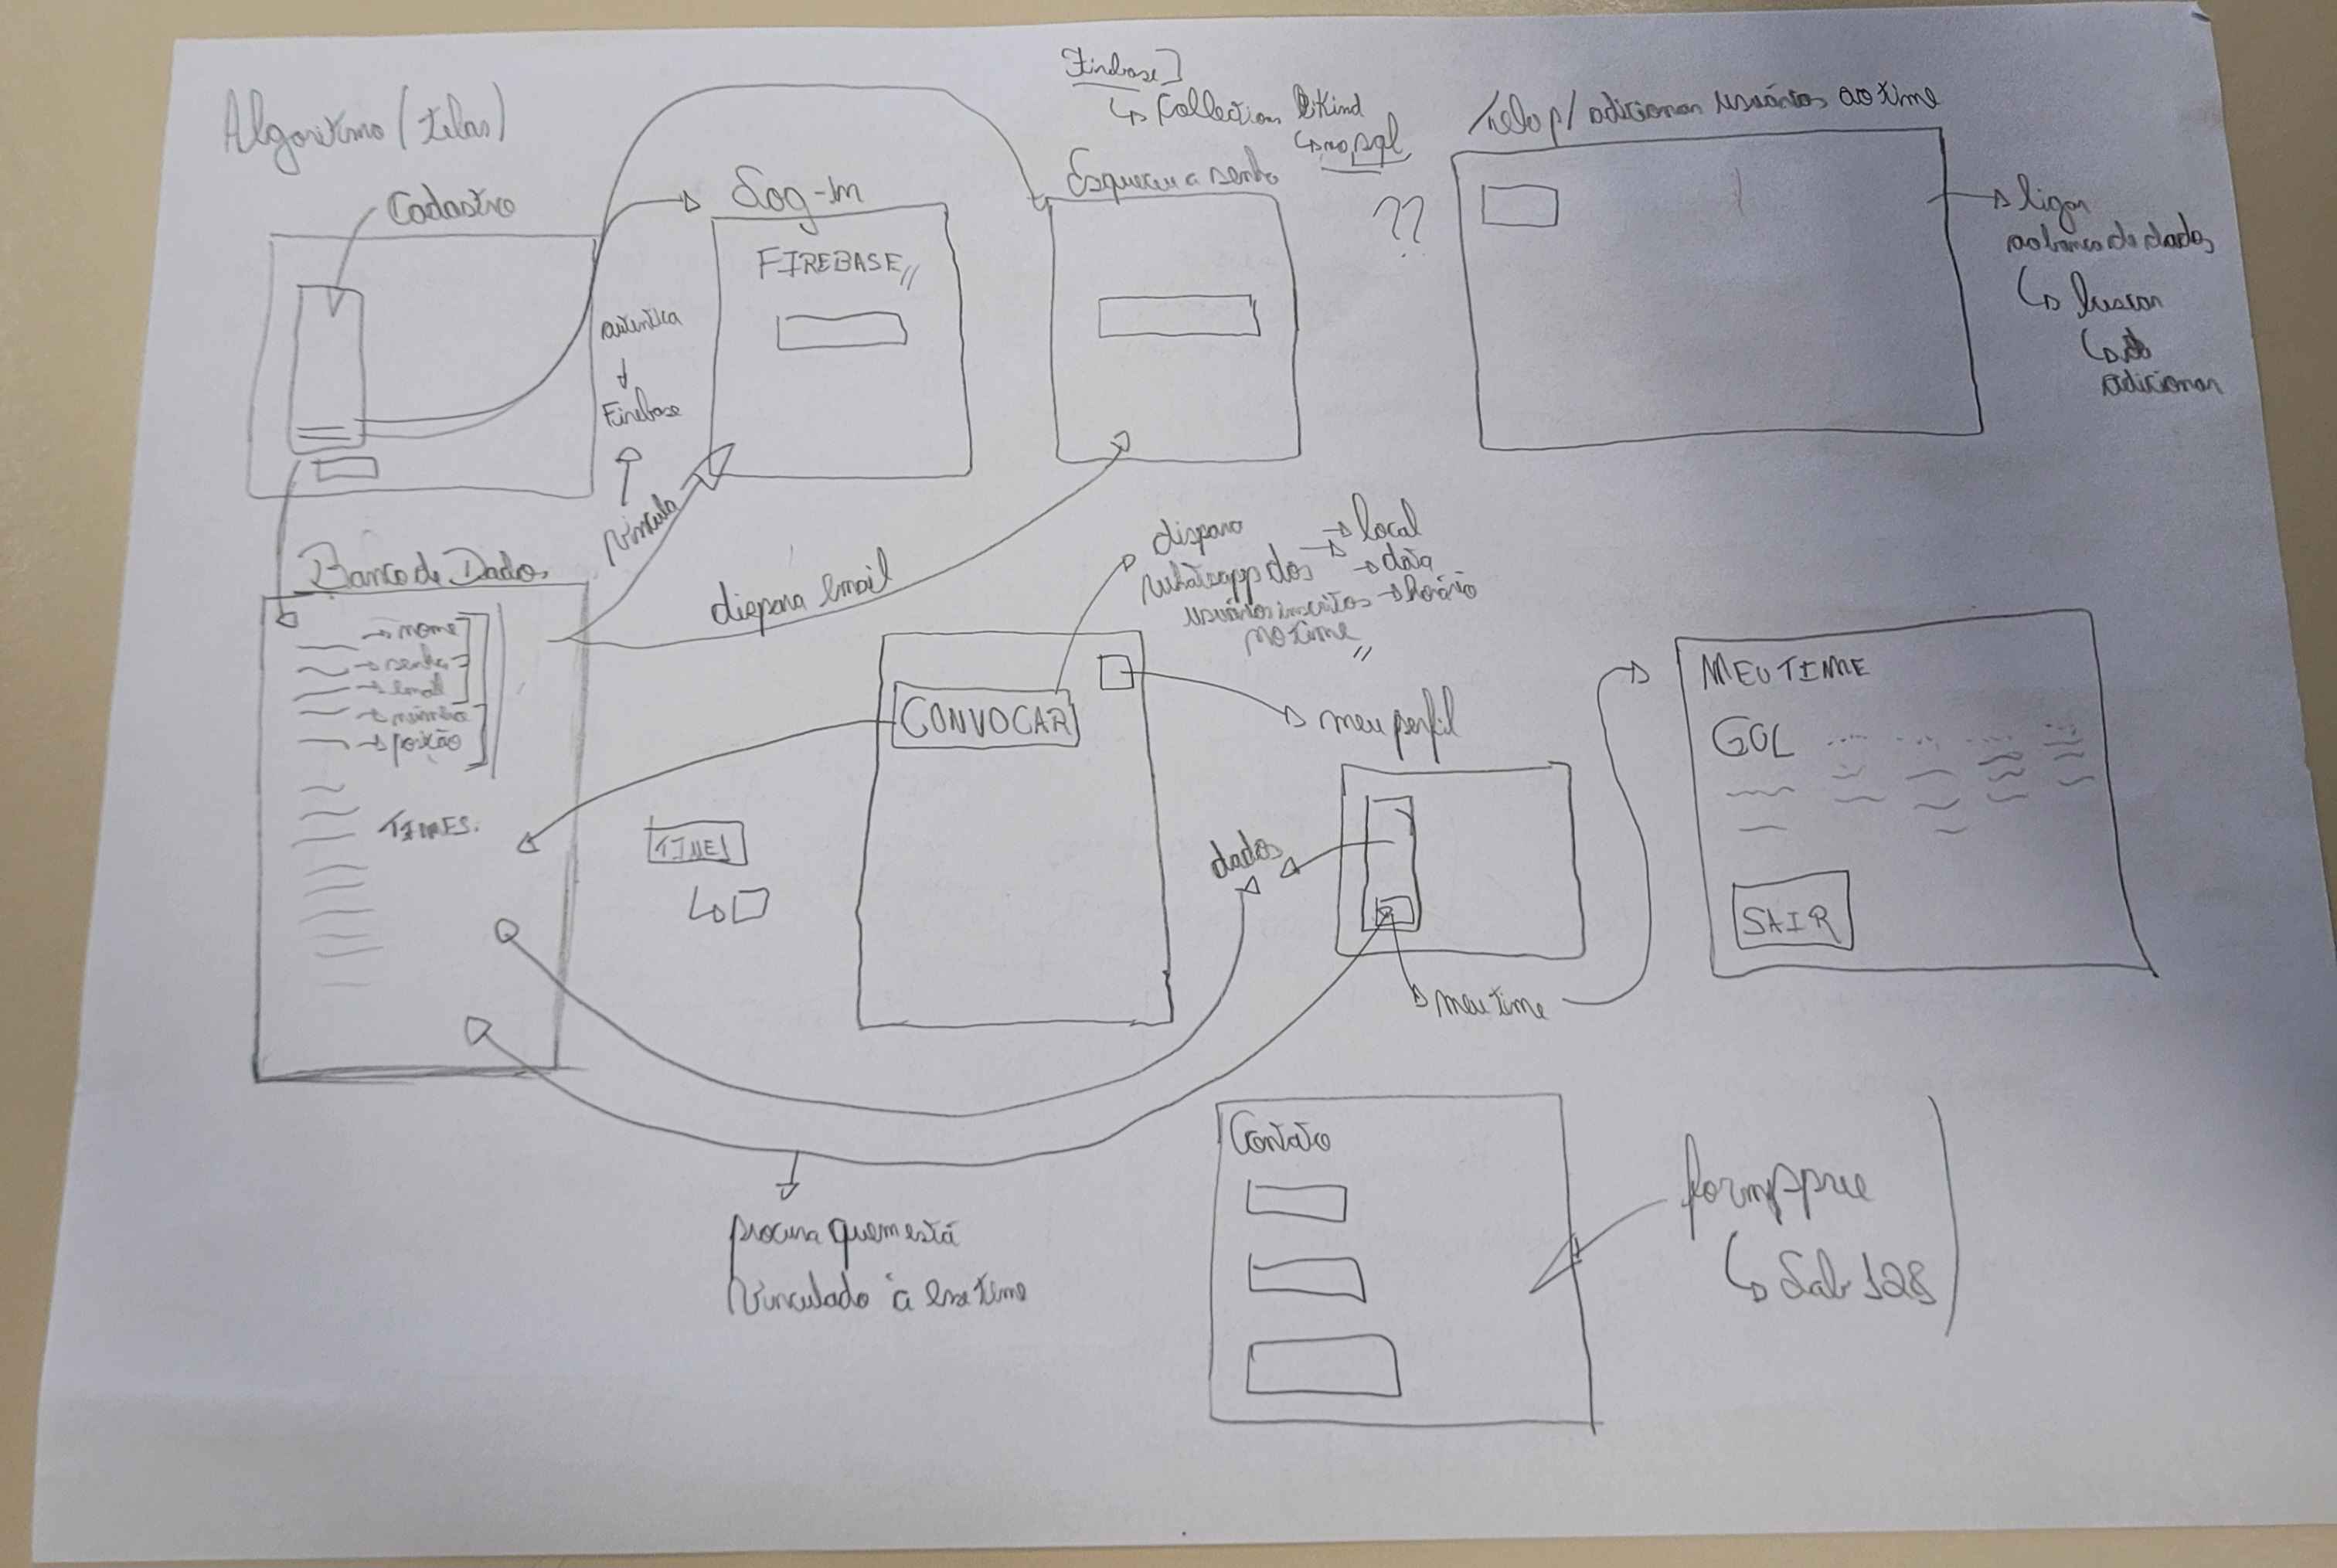 Algoritmo (telas)
Cadastro
Log-in
FIREBASE
autentica
Firebase
vincula
Firebase
Collection Kind
no sql
Esqueceu a senha
??
Tela p/ adicionar usuários ao time
ligar
ao banco de dados
buscar
adicionar
Banco de Dados
nome
senha
email
número
posição
TIMES.
dispara email
dispara
whatsapp dos
usuários inscritos
no time
local
data
horário
CONVOCAR
meu perfil
TIME1
dados
meu time
MEU TIME
GOL
SAIR
procura quem está
vinculado à esse time
Contato
formspree
Lab 128